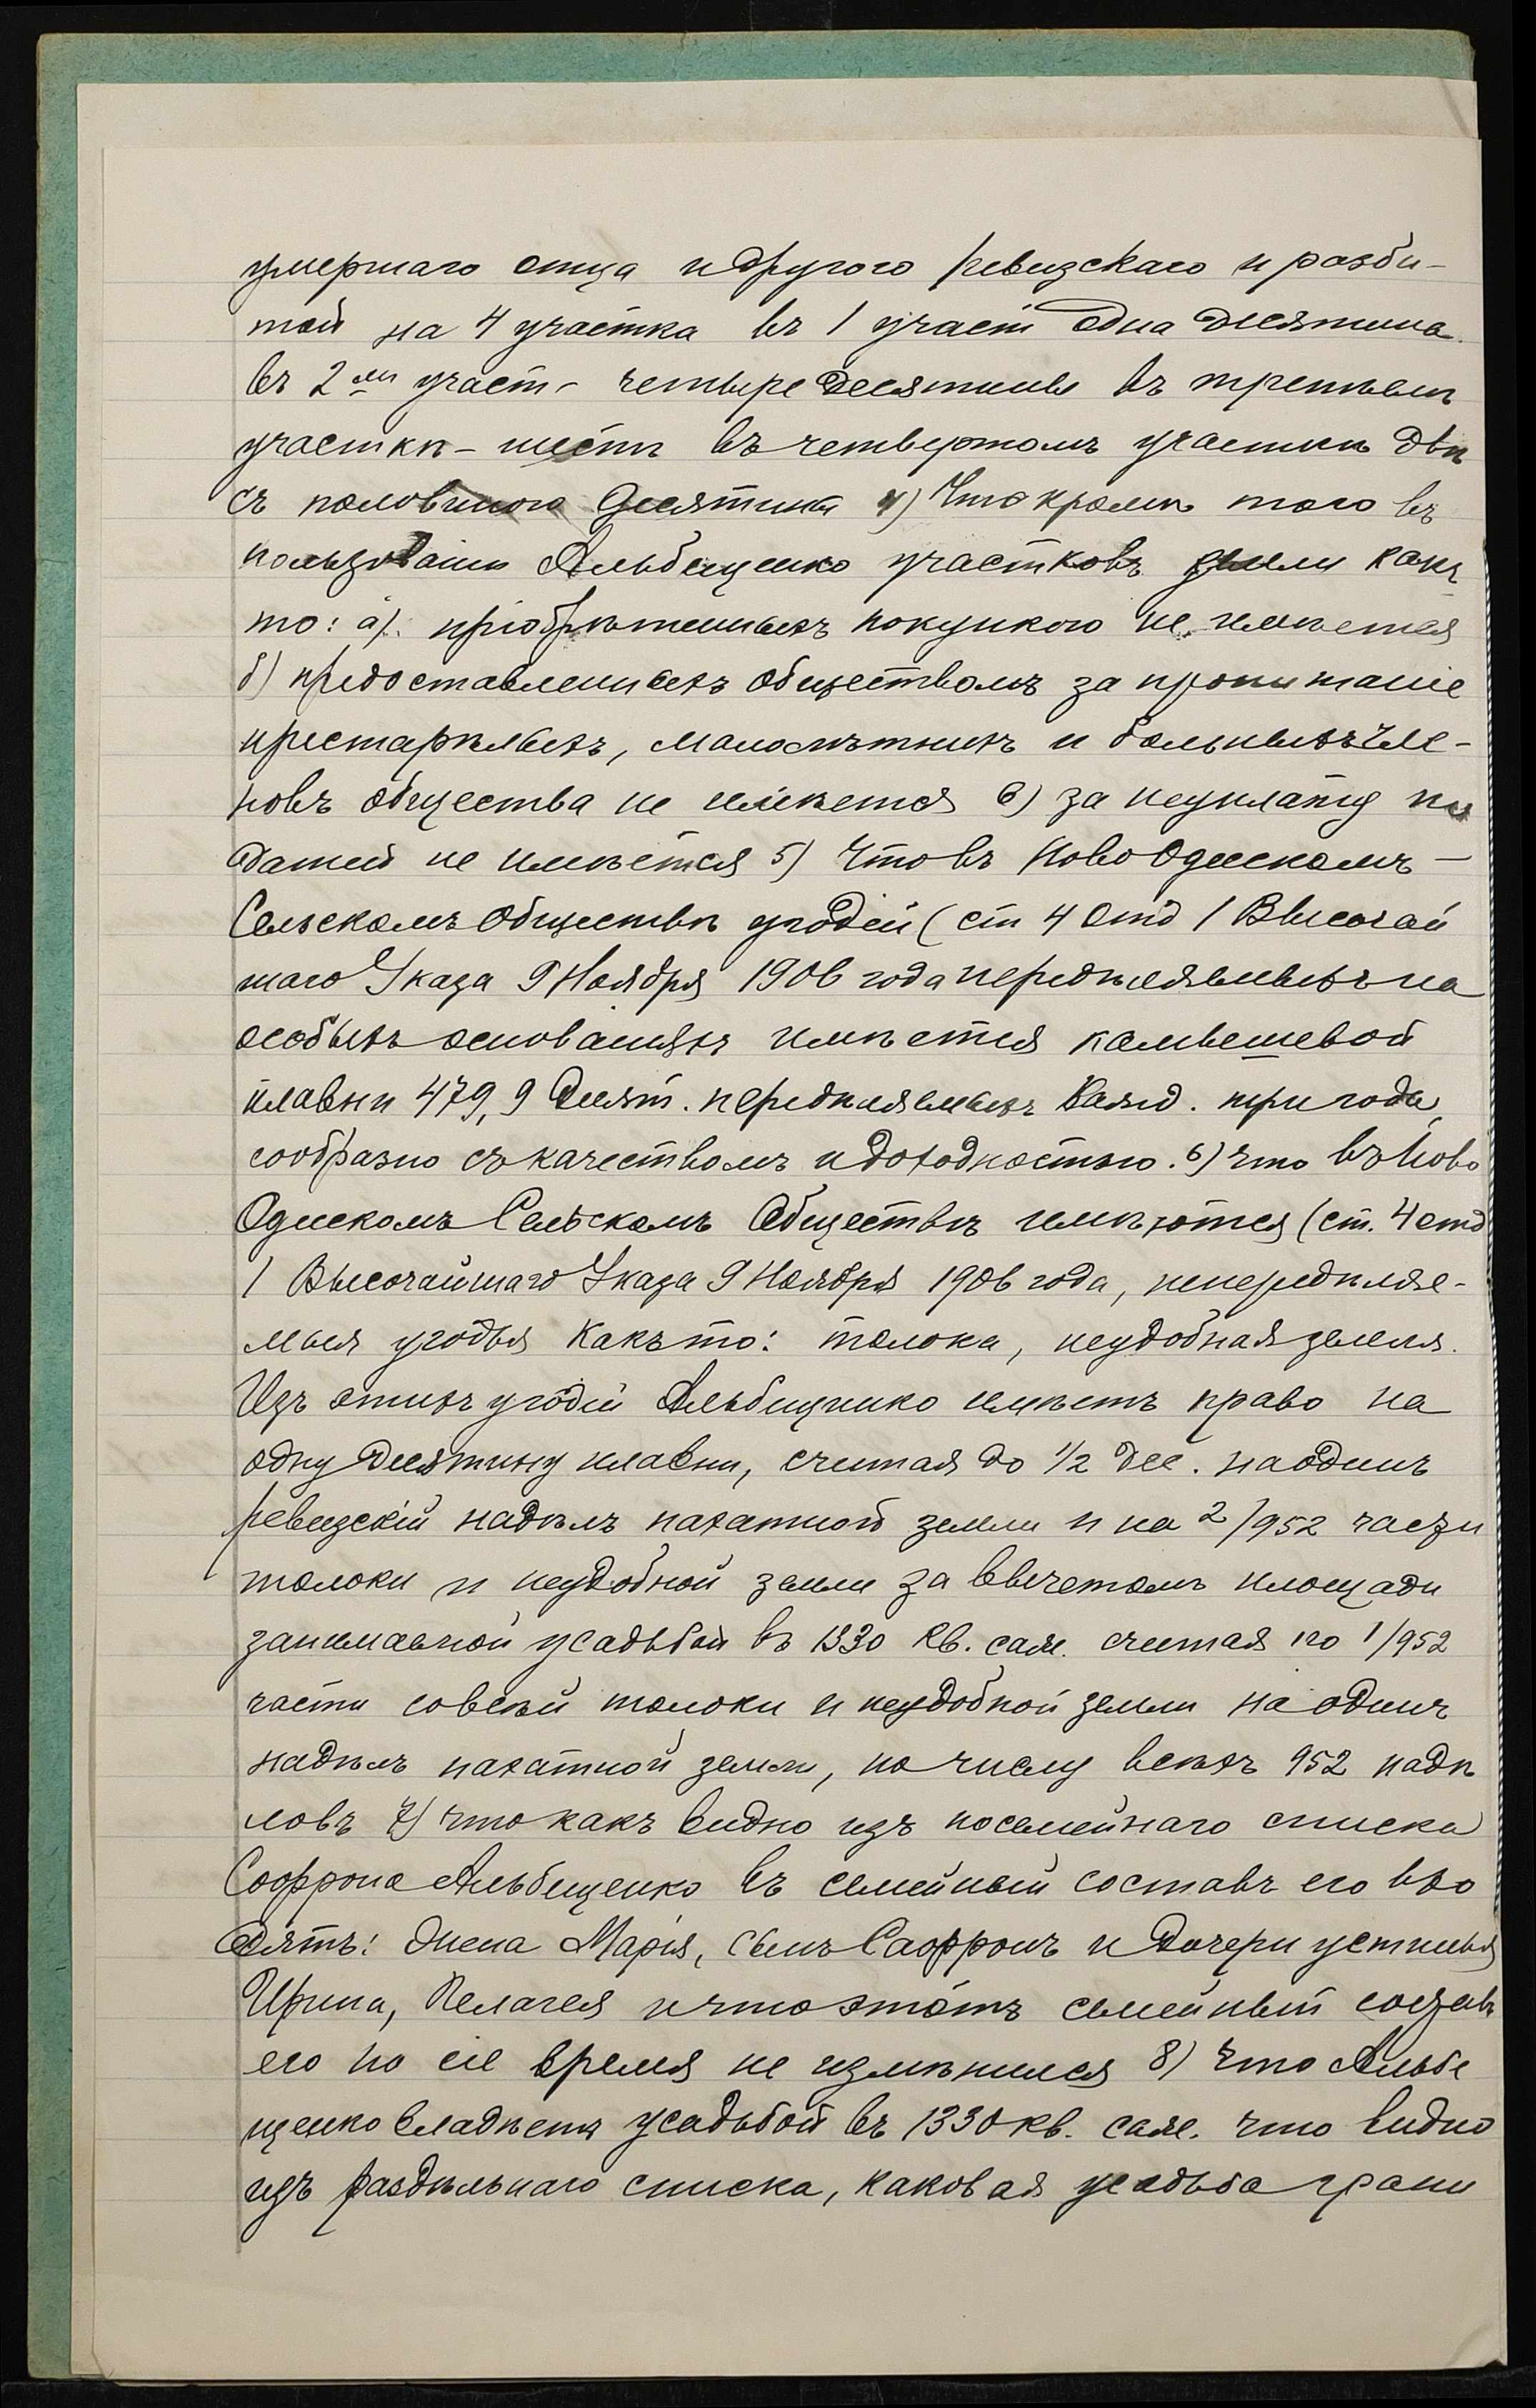 умершаго отца и другого ревизскаго и разби-
той на 4 участка въ 1 участ одна десятина
въ 2мъ участ- четыре десятины въ третьемъ
участкѣ - шесть въ четвертомъ участкѣ двѣ
съ половиною десятины 4) Что кромѣ того въ
пользованіи Альбещенко участковъ земли какъ
то: а). пріобрѣтенныхъ покупкою не имѣется
б) предоставленныхъ обществомъ за пропитаніе
престарѣлыхъ, малолѣтнихъ и больныхъ чле-
новъ общества не имѣется в) за неуплату по
датей не имѣется 5) Что въ Ново Одесскомъ -
Сельскомъ Обществѣ угодій (ст 4 отд 1 Высочай
шаго Указа 9 Ноября 1906 года передѣляемыхъ на
особыхъ основаніяхъ имѣется камышевой
плавни 479,9 десят. передѣляемыхъ кажд. три года
сообразно съ качествомъ и доходностью. 6) что въ Ново
Одесскомъ Сельскомъ Обществѣ имѣются (ст. 4 отд
1 Высочайшаго Указа 9 Ноября 1906 года, непередѣляе-
мыя угодья какъ то: толока, неудобная земля.
Изъ этихъ угодій Альбещенко имѣетъ право на
одну десятину плавни, считая до 1/2 дес. на одинъ
ревизскій надѣлъ пахатной земли и на 2/952 части
толоки и неудобной земли за вычетомъ площади
занимаемой усадьбой въ 1330 кв. саж. считая по 1/952
части со всей толоки и неудобной земли на одинъ
надѣлъ пахатной земли, по числу всѣхъ 952 надѣ
ловъ 7) что какъ видно изъ посемейнаго списка
Софрона Альбещенко въ семейный составъ его вхо
дятъ: жена Марія, сынъ Софронъ и дочери Устинья
Ирина, Пелагея и что этотъ семейный составъ
его по сіе время не измѣнился 8) Что Альбе
щенко владѣетъ усадьбой въ 1330 кв. саж. что видно
изъ раздѣльнаго списка, каковая усадьба грани